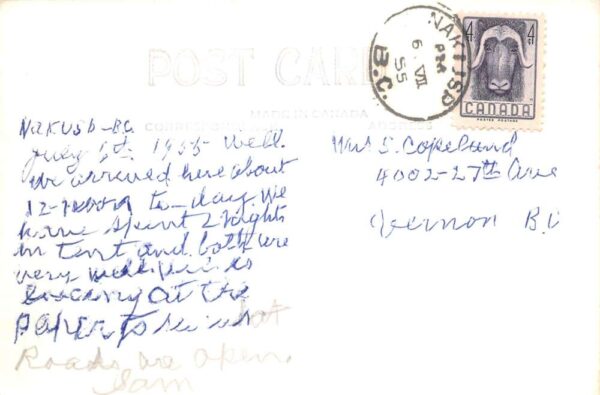 POST CARD
MADE IN CANADA
CORRESPONDENCE ADDRESS
NAKUSP
PM
6 VII
55
B.C.
4¢ 4¢
CANADA
POSTES POSTAGE
NAKUSP-BC
July 6th. 1955 Well.
we arrived here about
12-noon to-day. We
have spent 2 nights
in tent and both are
very well. is
looking at the
paper to see what
Roads are open.
Sam
Mrs S. Copeland
4002-27th Ave
Vernon B.C